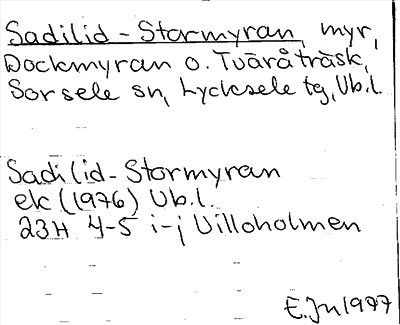 Sadilid-Stormyran, myr,
Dockmyran o. Tväråträsk,
Sorsele sn, Lycksele tg, Vb.l.
Sadilid-Stormyran
ek (1976) Vb.l.
23H 4-5 i-j Villoholmen
E.Jn 1977